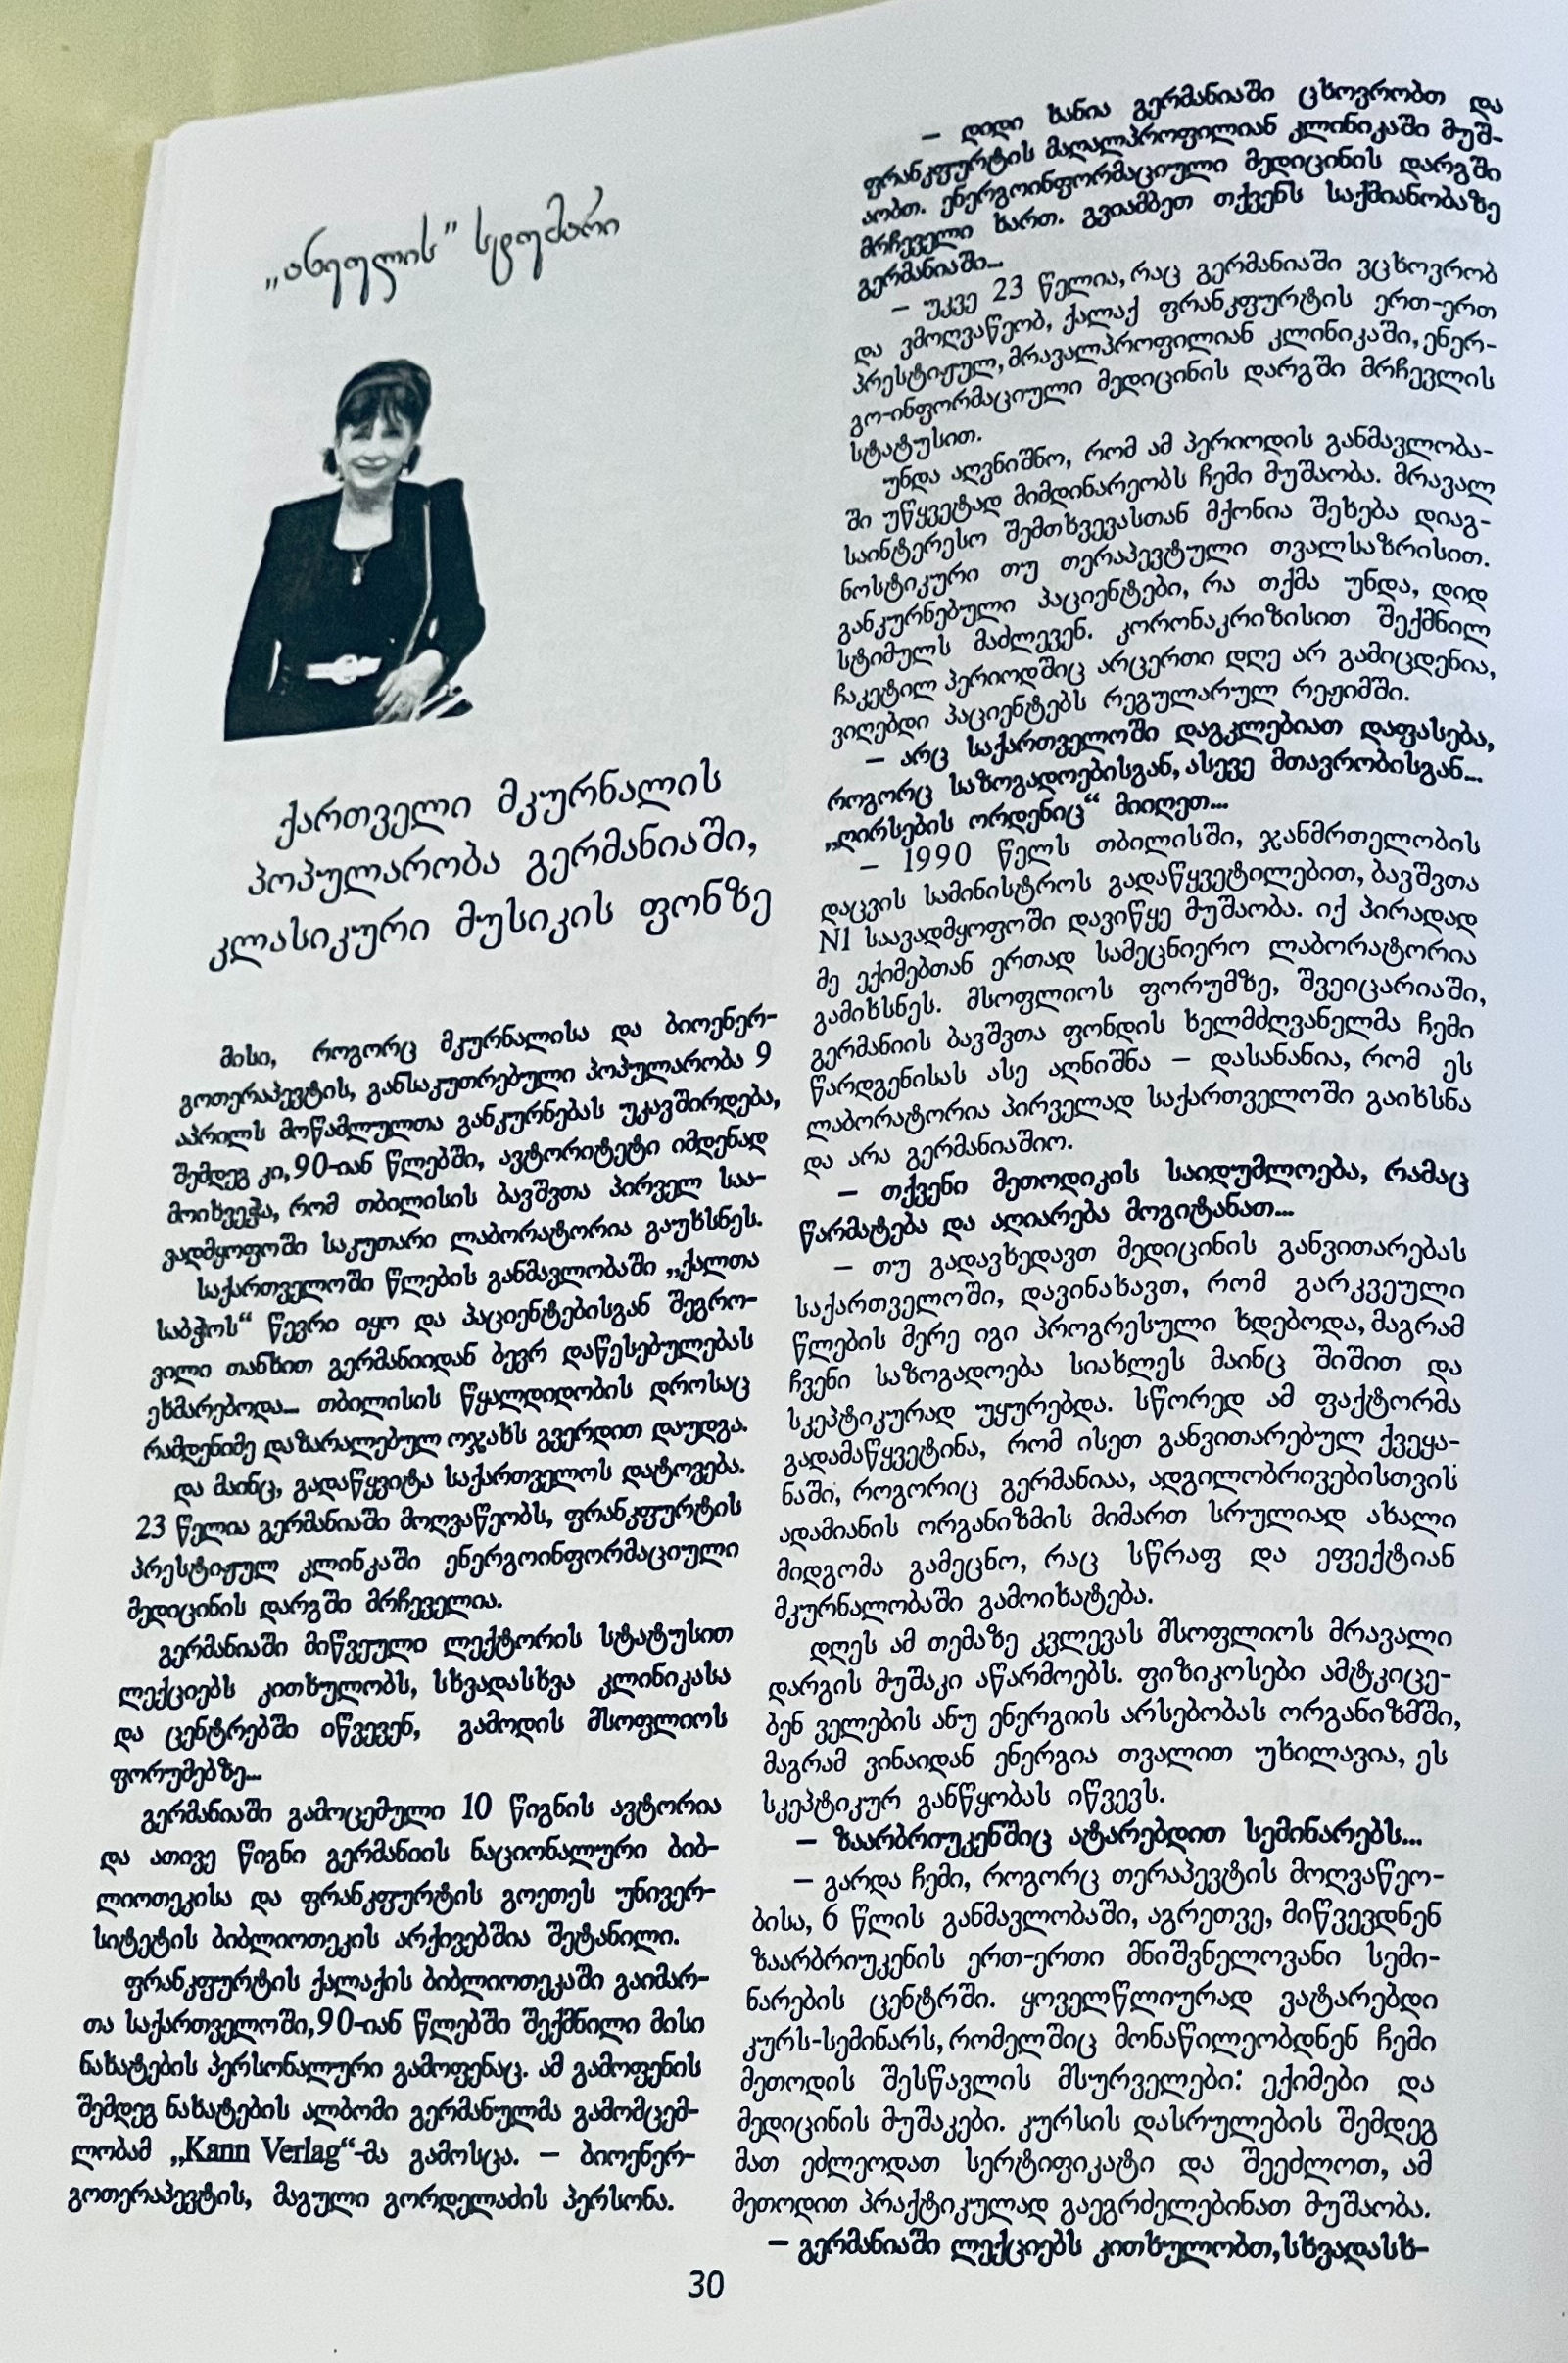 „ანეულის” სტუმარი
ქართველი მკურნალის
პოპულარობა გერმანიაში,
კლასიკური მუსიკის ფონზე
მისი, როგორც მკურნალისა და ბიოენერ-
გოთერაპევტის, განსაკუთრებული პოპულარობა 9
აპრილს მოწამლულთა განკურნებას უკავშირდება,
შემდეგ კი, 90-იან წლებში, ავტორიტეტი იმდენად
მოიხვეჭა, რომ თბილისის ბავშვთა პირველ საა-
ვადმყოფოში საკუთარი ლაბორატორია გაუხსნეს.
საქართველოში წლების განმავლობაში „ქალთა
საბჭოს“ წევრი იყო და პაციენტებისგან შეგრო-
ვილი თანხით გერმანიიდან ბევრ დაწესებულებას
ეხმარებოდა... თბილისის წყალდიდობის დროსაც
რამდენიმე დაზარალებულ ოჯახს გვერდით დაუდგა.
და მაინც, გადაწყვიტა საქართველოს დატოვება.
23 წელია გერმანიაში მოღვაწეობს, ფრანკფურტის
პრესტიჟულ კლინკაში ენერგოინფორმაციული
მედიცინის დარგში მრჩეველია.
გერმანიაში მიწვეული ლექტორის სტატუსით
ლექციებს კითხულობს, სხვადასხვა კლინიკასა
და ცენტრებში იწვევენ, გამოდის მსოფლიოს
ფორუმებზე...
გერმანიაში გამოცემული 10 წიგნის ავტორია
და ათივე წიგნი გერმანიის ნაციონალური ბიბ-
ლიოთეკისა და ფრანკფურტის გოეთეს უნივერ-
სიტეტის ბიბლიოთეკის არქივებშია შეტანილი.
ფრანკფურტის ქალაქის ბიბლიოთეკაში გაიმარ-
თა საქართველოში, 90-იან წლებში შექმნილი მისი
ნახატების პერსონალური გამოფენაც. ამ გამოფენის
შემდეგ ნახატების ალბომი გერმანულმა გამომცემ-
ლობამ „Kann Verlag“-მა გამოსცა. – ბიოენერ-
გოთერაპევტის, მაგული გორდელაძის პერსონა.
– დიდი ხანია გერმანიაში ცხოვრობთ და
ფრანკფურტის მაღალპროფილიან კლინიკაში მუშ-
აობთ. ენერგოინფორმაციული მედიცინის დარგში
მრჩეველი ხართ. გვიამბეთ თქვენს საქმიანობაზე
გერმანიაში...
– უკვე 23 წელია, რაც გერმანიაში ვცხოვრობ
და ვმოღვაწეობ, ქალაქ ფრანკფურტის ერთ-ერთ
პრესტიჟულ, მრავალპროფილიან კლინიკაში, ენერ-
გო-ინფორმაციული მედიცინის დარგში მრჩევლის
სტატუსით.
უნდა აღვნიშნო, რომ ამ პერიოდის განმავლობა-
ში უწყვეტად მიმდინარეობს ჩემი მუშაობა. მრავალ
საინტერესო შემთხვევასთან მქონია შეხება დიაგ-
ნოსტიკური თუ თერაპევტული თვალსაზრისით.
განკურნებული პაციენტები, რა თქმა უნდა, დიდ
სტიმულს მაძლევენ. კორონაკრიზისით შექმნილ
ჩაკეტილ პერიოდშიც არცერთი დღე არ გამიცდენია,
ვიღებდი პაციენტებს რეგულარულ რეჟიმში.
– არც საქართველოში დაგკლებიათ დაფასება,
როგორც საზოგადოებისგან, ასევე მთავრობისგან...
„ღირსების ორდენიც“ მიიღეთ...
– 1990 წელს თბილისში, ჯანმრთელობის
დაცვის სამინისტროს გადაწყვეტილებით, ბავშვთა
N1 საავადმყოფოში დავიწყე მუშაობა. იქ პირადად
მე ექიმებთან ერთად სამეცნიერო ლაბორატორია
გამიხსნეს. მსოფლიოს ფორუმზე, შვეიცარიაში,
გერმანიის ბავშვთა ფონდის ხელმძღვანელმა ჩემი
წარდგენისას ასე აღნიშნა – დასანანია, რომ ეს
ლაბორატორია პირველად საქართველოში გაიხსნა
და არა გერმანიაშიო.
– თქვენი მეთოდიკის საიდუმლოება, რამაც
წარმატება და აღიარება მოგიტანათ...
– თუ გადავხედავთ მედიცინის განვითარებას
საქართველოში, დავინახავთ, რომ გარკვეული
წლების მერე იგი პროგრესული ხდებოდა, მაგრამ
ჩვენი საზოგადოება სიახლეს მაინც შიშით და
სკეპტიკურად უყურებდა. სწორედ ამ ფაქტორმა
გადამაწყვეტინა, რომ ისეთ განვითარებულ ქვეყა-
ნაში, როგორიც გერმანიაა, ადგილობრივებისთვის
ადამიანის ორგანიზმის მიმართ სრულიად ახალი
მიდგომა გამეცნო, რაც სწრაფ და ეფექტიან
მკურნალობაში გამოიხატება.
დღეს ამ თემაზე კვლევას მსოფლიოს მრავალი
დარგის მუშაკი აწარმოებს. ფიზიკოსები ამტკიცე-
ბენ ველების ანუ ენერგიის არსებობას ორგანიზმში,
მაგრამ ვინაიდან ენერგია თვალით უხილავია, ეს
სკეპტიკურ განწყობას იწვევს.
– ზაარბრიუკენშიც ატარებდით სემინარებს...
– გარდა ჩემი, როგორც თერაპევტის მოღვაწეო-
ბისა, 6 წლის განმავლობაში, აგრეთვე, მიწვევდნენ
ზაარბრიუკენის ერთ-ერთი მნიშვნელოვანი სემი-
ნარების ცენტრში. ყოველწლიურად ვატარებდი
კურს-სემინარს, რომელშიც მონაწილეობდნენ ჩემი
მეთოდის შესწავლის მსურველები: ექიმები და
მედიცინის მუშაკები. კურსის დასრულების შემდეგ
მათ ეძლეოდათ სერტიფიკატი და შეეძლოთ, ამ
მეთოდით პრაქტიკულად გაეგრძელებინათ მუშაობა.
– გერმანიაში ლექციებს კითხულობთ, სხვადასხ-
30